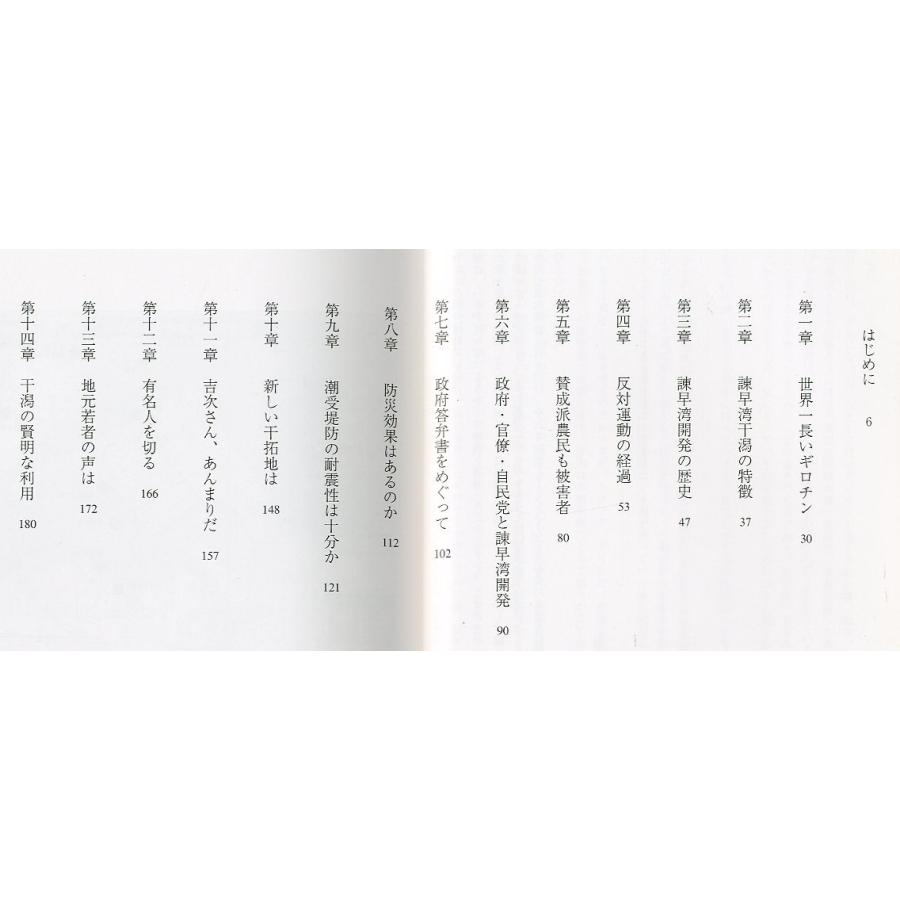 はじめに 6
第一章 世界一長いギロチン 30
第二章 諫早湾干潟の特徴 37
第三章 諫早湾開発の歴史 47
第四章 反対運動の経過 53
第五章 賛成派農民も被害者 80
第六章 政府・官僚・自民党と諫早湾開発 90
第七章 政府答弁書をめぐって 102
第八章 防災効果はあるのか 112
第九章 潮受堤防の耐震性は十分か 121
第十章 新しい干拓地は 148
第十一章 吉次さん、あんまりだ 157
第十二章 有名人を切る 166
第十三章 地元若者の声は 172
第十四章 干潟の賢明な利用 180